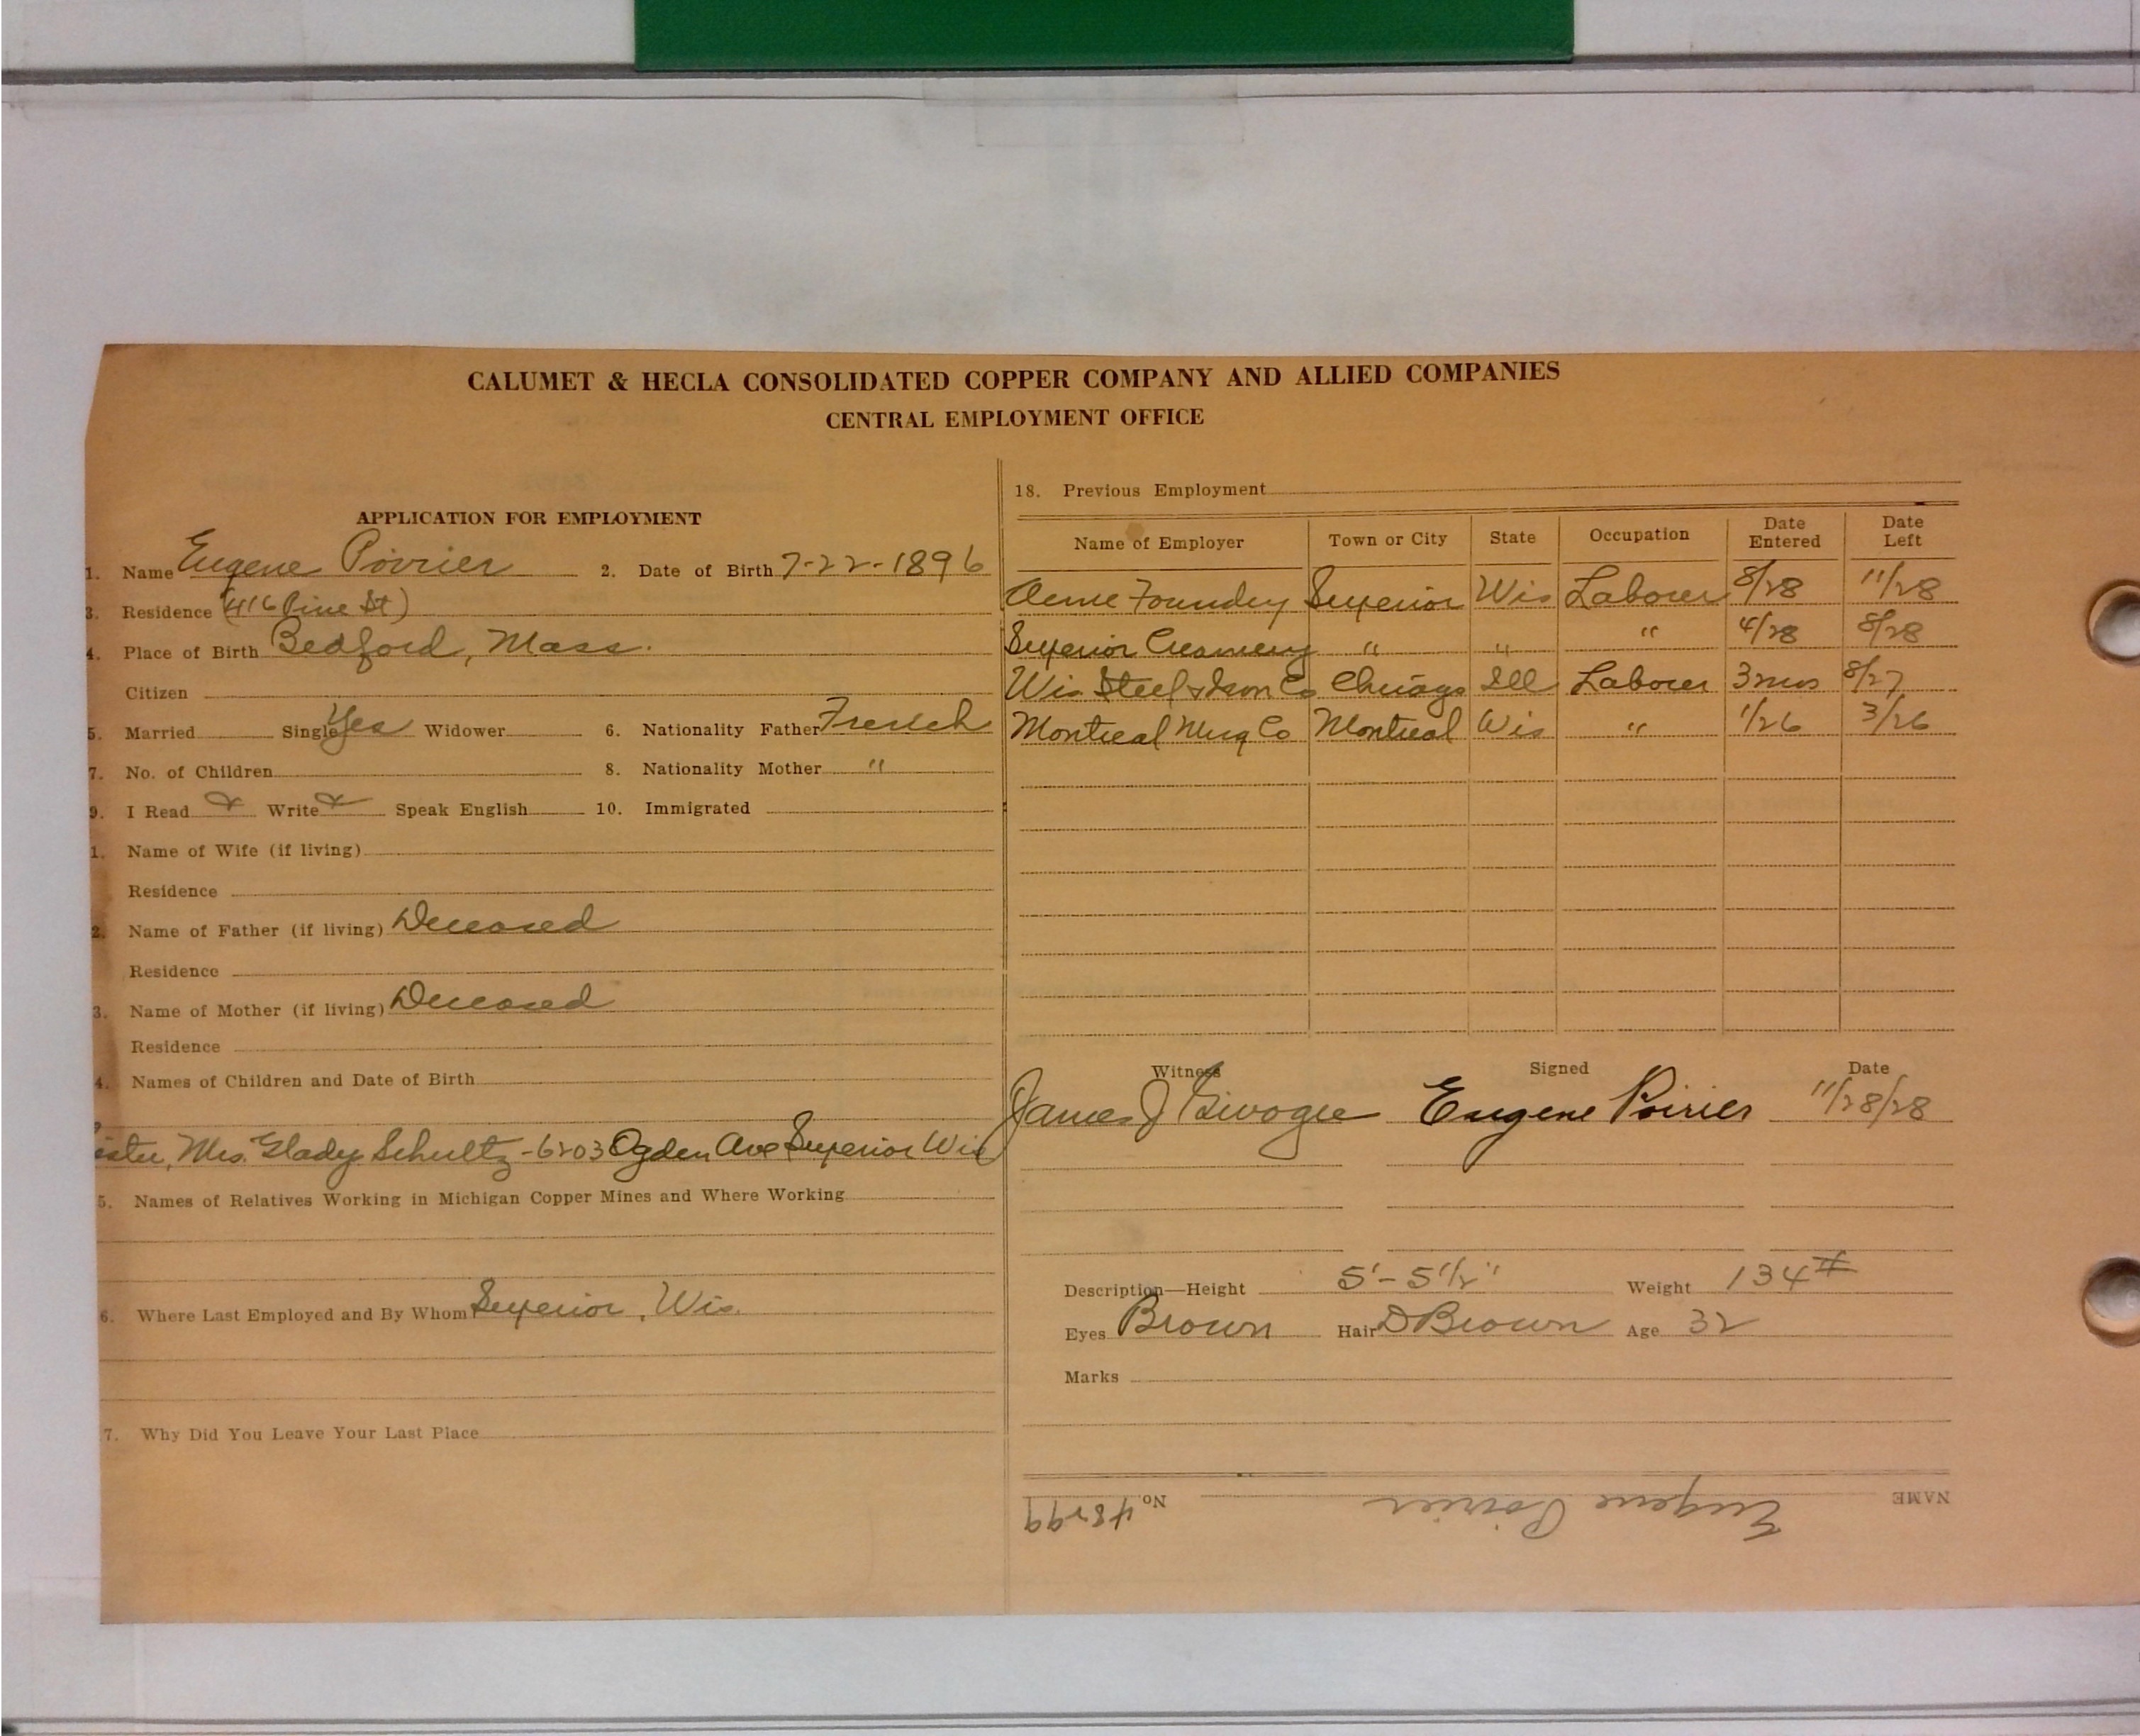 CALUMET & HECLA CONSOLIDATED COPPER COMPANY AND ALLIED COMPANIES
CENTRAL EMPLOYMENT OFFICE
APPLICATION FOR EMPLOYMENT
1. Name Eugene Poirier 2. Date of Birth 7-22-1896
3. Residence (416 Pine St)
4. Place of Birth Bedford, Mass.
Citizen
5. Married Single Yes Widower 6. Nationality Father French
7. No. of Children 8. Nationality Mother "
9. I Read Write Speak English 10. Immigrated
1. Name of Wife (if living)
Residence
2. Name of Father (if living) Deceased
Residence
3. Name of Mother (if living) Deceased
Residence
4. Names of Children and Date of Birth
ister, Mrs. Glady Schultz - 6203 Ogden Ave Superior Wis
5. Names of Relatives Working in Michigan Copper Mines and Where Working
6. Where Last Employed and By Whom Superior, Wis.
7. Why Did You Leave Your Last Place
18. Previous Employment
Name of Employer Town or City State Occupation Date Entered Date Left
Acme Foundry Superior Wis Laborer 8/28 11/28
Superior Creamery " " " 4/28 8/28
Wis Steel & Iron Co Chicago Ill Laborer 3 mos 8/27
Montreal Mng Co Montreal Wis " 1/26 3/26
Witness Signed Date
James J Eugene Poirier 11/28/28
Description—Height 5'-5 1/2" Weight 134#
Eyes Brown Hair D Brown Age 32
Marks
NAME Eugene Poirier No. 48299